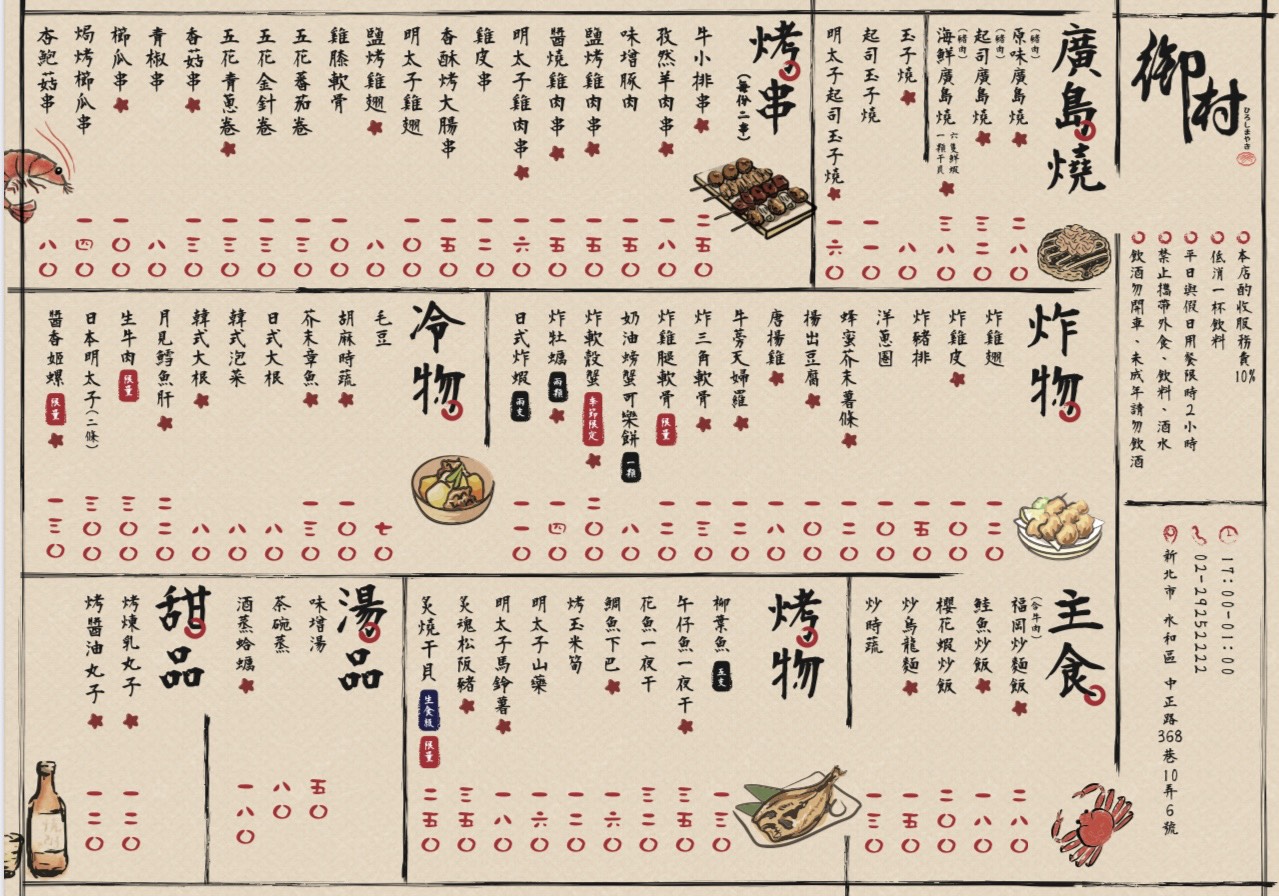 御村
ひろしまやき
本店酌收服務費10%
低消一杯飲料
平日與假日用餐限時2小時
禁止攜帶外食、飲料、酒水
飲酒勿開車、未成年請勿飲酒
17:00-01:00
02-29252222
新北市 永和區 中正路368巷10弄6號
廣島燒
原味廣島燒(豬肉) 二八〇
起司廣島燒(豬肉) 三二〇
海鮮廣島燒(豬肉) 六隻鮮蝦 一顆干貝 三八〇
玉子燒 八〇
起司玉子燒 一一〇
明太子起司玉子燒 一六〇
烤串(每份二串)
牛小排串 二五〇
孜然羊肉串 一八〇
味增豚肉 一五〇
鹽烤雞肉串 一五〇
醬燒雞肉串 一五〇
明太子雞肉串 一六〇
雞皮串 一二〇
香酥烤大腸串 一五〇
明太子雞翅 一〇〇
鹽烤雞翅 八〇
雞膝軟骨 一〇〇
五花蕃茄卷 一三〇
五花金針卷 一三〇
五花青蔥卷 一三〇
香菇串 一三〇
青椒串 八〇
櫛瓜串 一〇〇
焗烤櫛瓜串 一四〇
杏鮑菇串 八〇
炸物
炸雞翅 一二〇
炸雞皮 一〇〇
炸豬排 一五〇
洋蔥圈 一〇〇
蜂蜜芥末薯條 一二〇
揚出豆腐 一〇〇
唐揚雞 一八〇
牛蒡天婦羅 一二〇
炸三角軟骨 一三〇
炸雞腿軟骨 限量 一二〇
奶油螃蟹可樂餅 一顆 八〇
炸軟殼蟹 季節限定 二〇〇
炸牡蠣 兩顆 一四〇
日式炸蝦 兩支 一一〇
冷物
毛豆 七〇
胡麻時蔬 一〇〇
芥末章魚 一三〇
日式大根 八〇
韓式泡菜 八〇
韓式大根 八〇
月見鱈魚肝 二二〇
生牛肉 限量 三〇〇
日本明太子(二條) 三〇〇
醬香姬螺 限量 一三〇
主食
福岡炒麵飯(含牛肉) 二八〇
鮭魚炒飯 二八〇
櫻花蝦炒飯 一八〇
炒烏龍麵 一五〇
炒時蔬 一三〇
烤物
柳葉魚 五支 一三〇
午仔魚一夜干 三五〇
花魚一夜干 三二〇
鯛魚下巴 一六〇
烤玉米筍 一二〇
明太子山藥 一六〇
明太子馬鈴薯 一八〇
炙魂松阪豬 三五〇
炙燒干貝 生食級 限量 二五〇
湯品
味增湯 五〇
茶碗蒸 八〇
酒蒸蛤蠣 一八〇
甜品
烤煉乳丸子 一二〇
烤醬油丸子 一二〇